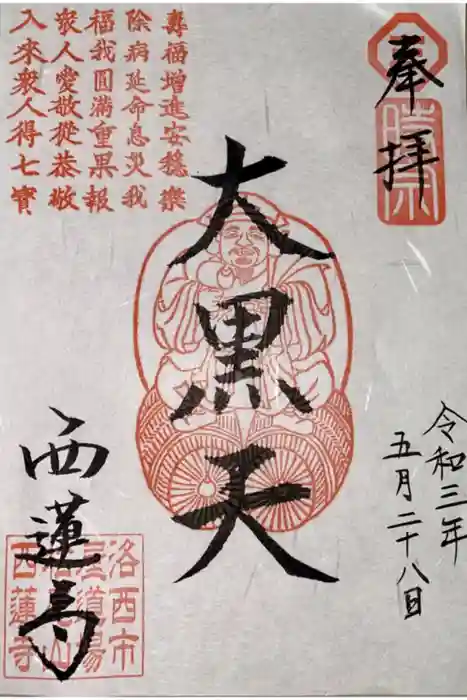 奉拝
時宗
令和三年
五月二十八日
大黒天
壽福増進安穏樂
除病延命息災我
福我圓滿重果報
衆人愛敬從恭敬
入來衆人得七寶
西蓮寺
洛西市
道場
西蓮寺